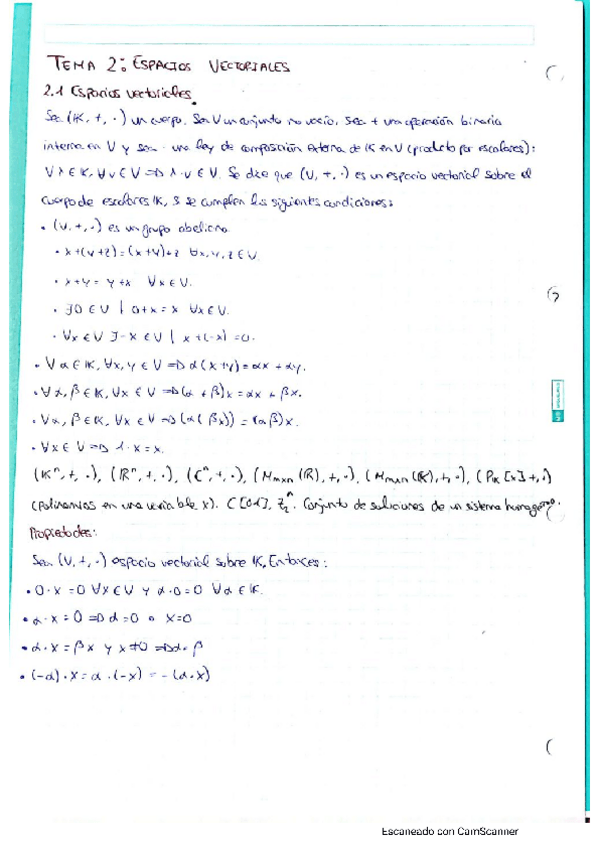 TEMA 2: ESPACIOS VECTORIALES
2.1 Espacios vectoriales.
Sea (K, +, ·) un cuerpo. Sea V un conjunto no vacío, sea + una operación binaria
interna en V y sea · una ley de composición externa de K en V (producto por escalares):
∀λ∈K, ∀v∈V ⇒ λ·v∈V. Se dice que (V, +, ·) es un espacio vectorial sobre el
cuerpo de escalares K, si se cumplen las siguientes condiciones:
• (V, +, ·) es un grupo abeliano
• x+(y+z)=(x+y)+z ∀x,y,z∈V.
• x+y = y+x ∀x∈V.
• ∃0∈V | 0+x=x ∀x∈V.
• ∀x∈V ∃-x∈V | x+(-x)=0.
• ∀α∈K, ∀x,y∈V ⇒ α(x+y)=αx+αy.
• ∀α,β∈K, ∀x∈V ⇒ (α+β)x=αx+βx.
• ∀α,β∈K, ∀x∈V ⇒ (α(βx))=(αβ)x.
• ∀x∈V ⇒ 1·x=x.
(Kⁿ, +, ·), (ℝⁿ, +, ·), (ℂⁿ, +, ·), (Mmxn(ℝ), +, ·), (Mmxn(K), +, ·), (PK[x] +, ·)
(Polinomios en una variable x). C[0,1], ℤ₂ⁿ. Conjunto de soluciones de un sistema homogéneo.
Propiedades:
Sea (V, +, ·) espacio vectorial sobre K, Entonces:
• 0·x=0 ∀x∈V y α·0=0 ∀α∈K.
• α·x=0 ⇒ α=0 o x=0
• α·x=βx y x≠0 ⇒ α=β
• (-α)·x=α·(-x)=-(α·x)
Escaneado con CamScanner